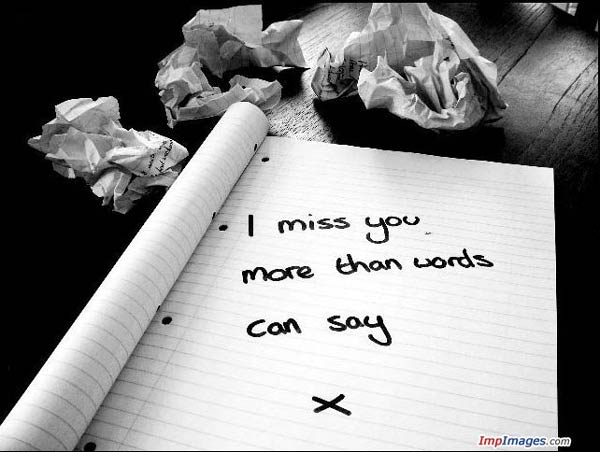 I miss you
more than words
can say
x
ImpImages.com